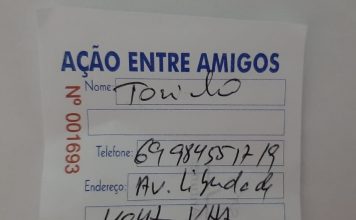 AÇÃO ENTRE AMIGOS
Nome:
Nº 001693
Telefone: 69 984551719
Endereço: Av. Liberdade